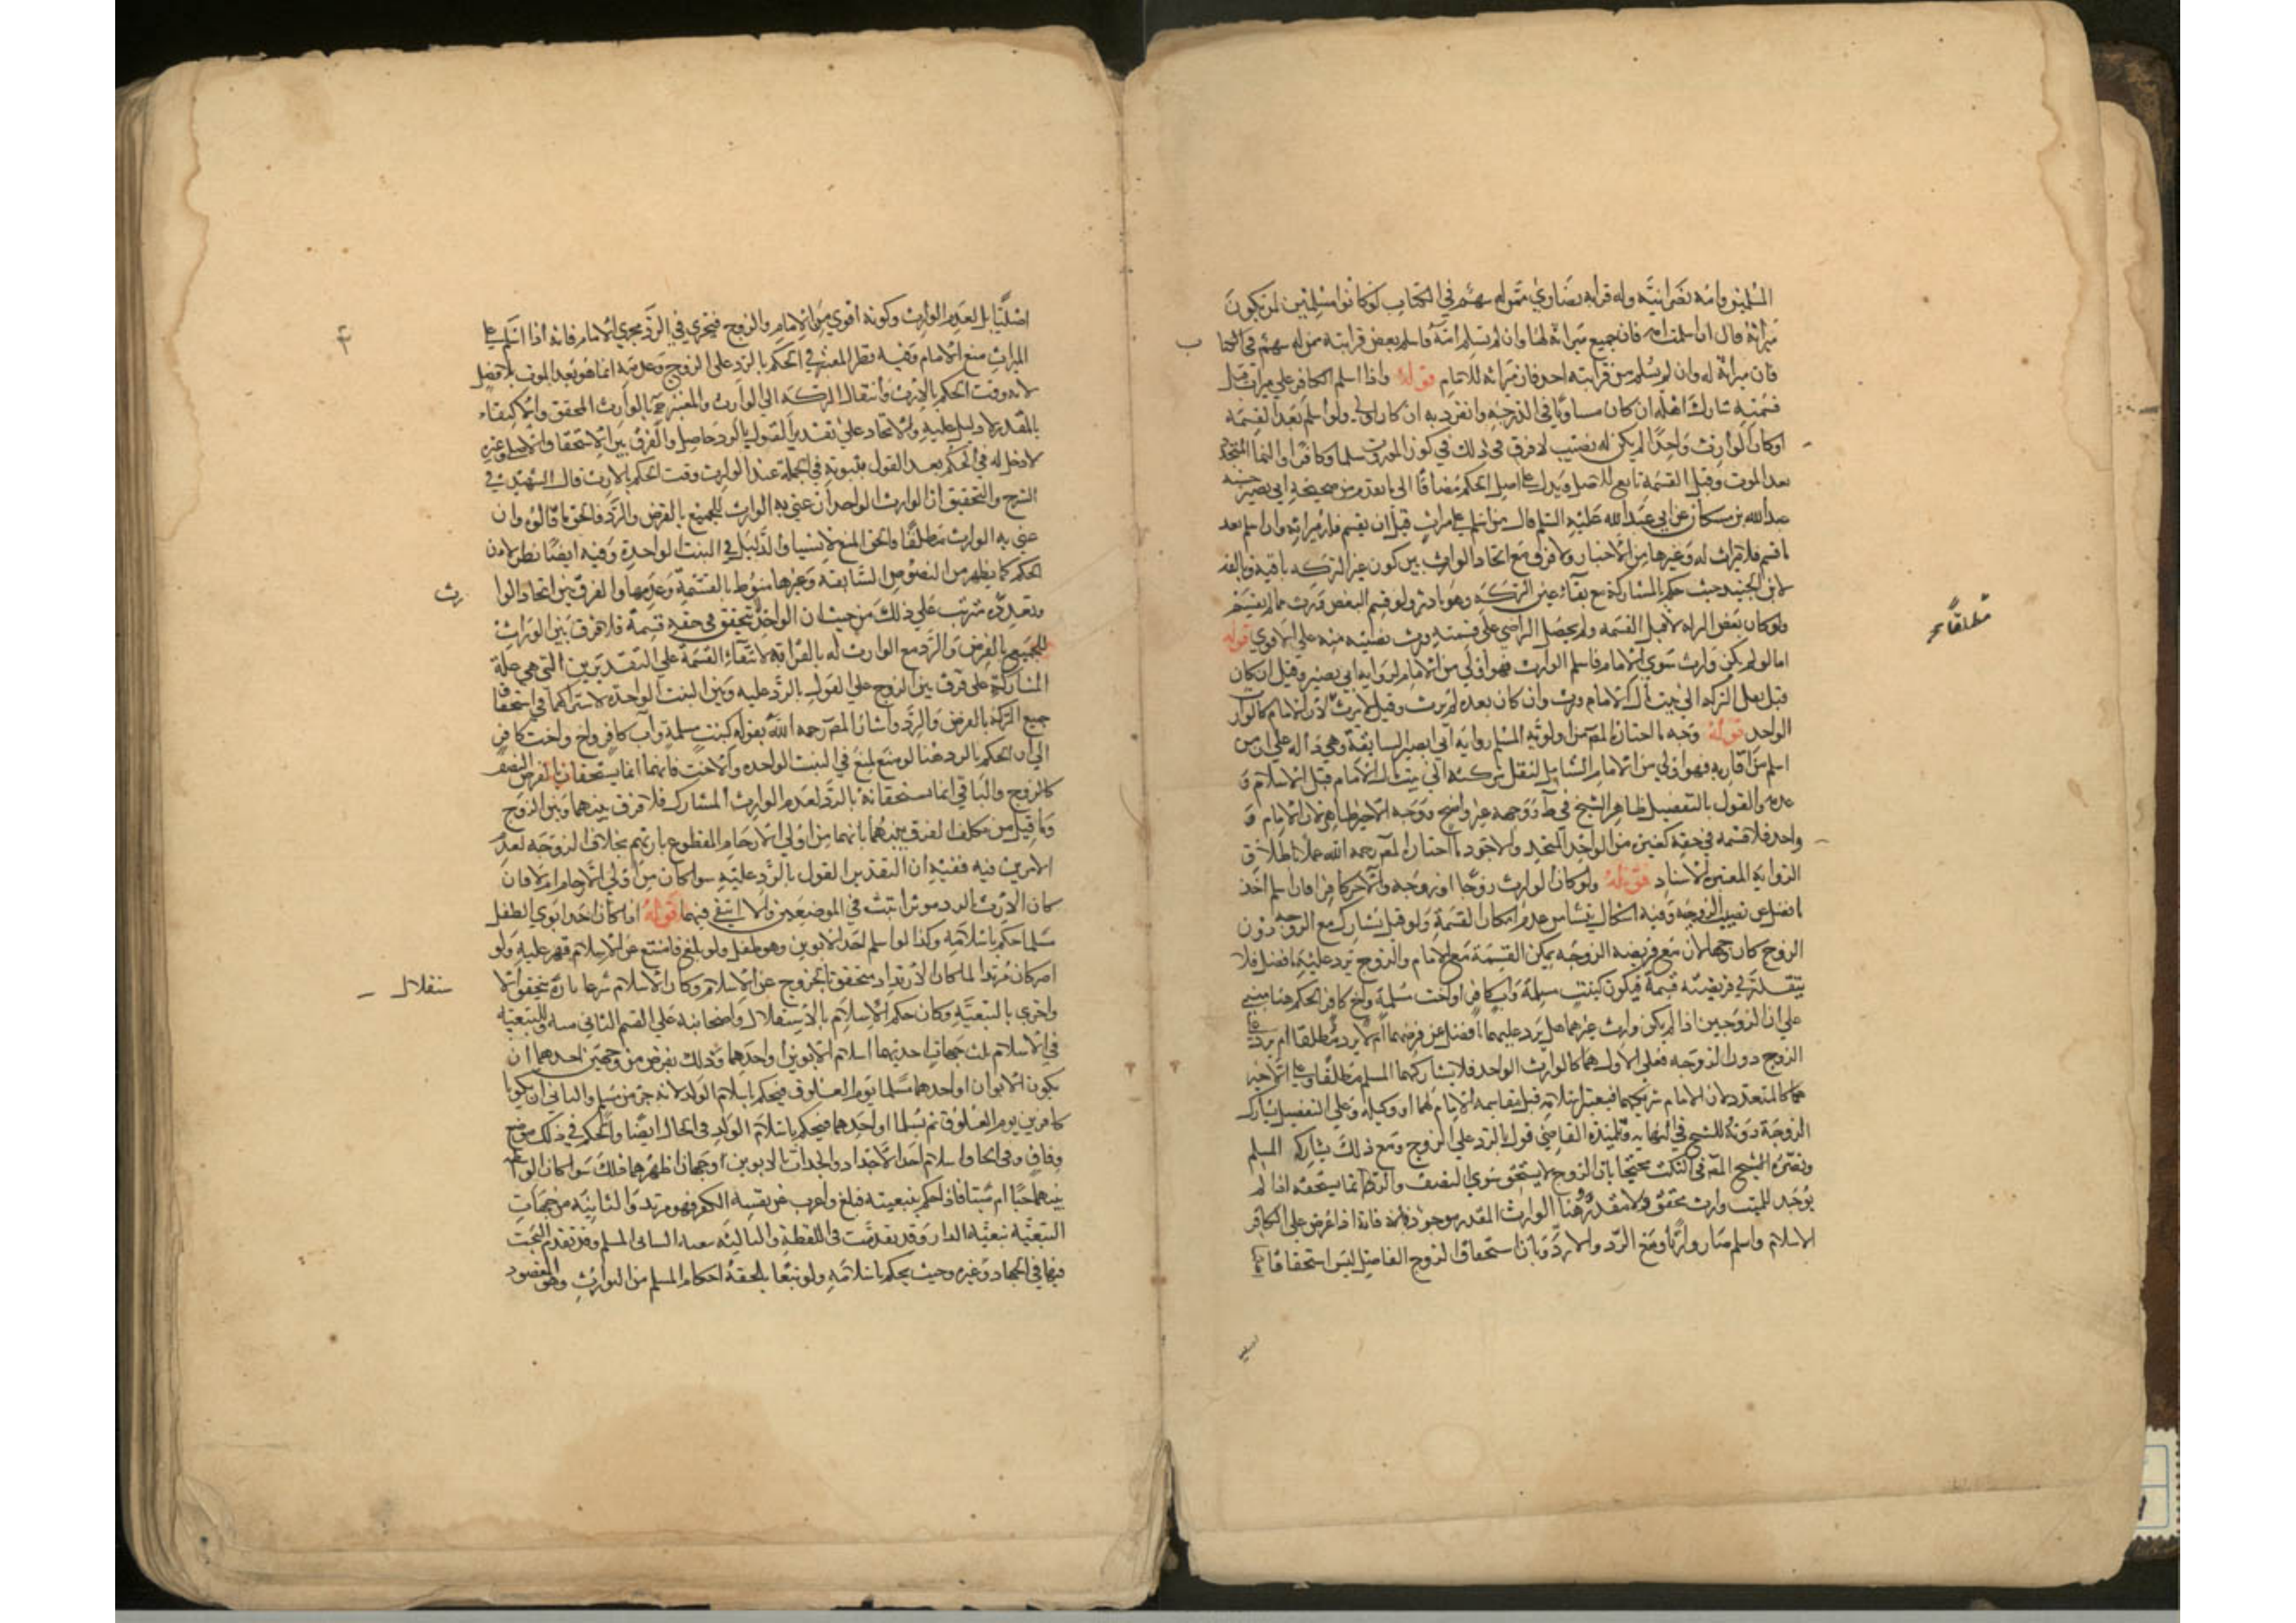 المسلمين وامه نصرانية وله قرابة نصاري ممن له سهم في الكتاب لو كانوا مسلمين لمن يكون
ميراثه قال ان اسلمت امه فان جميع ميراثه لها وان لم تسلم امه واسلم بعض قرابته ممن له سهم في الكتا
ب
فان ميراثه له وان لم يسلم من قرابته احد فان ميراثه للامام قوله واذا اسلم الكافر علي ميراث قبل
قسمته شارك اهله ان كان مساويا في الدرجة وانفرد به ان كان اولي ولو اسلم بعد القسمة
اوكان الوارث واحدا لم يكن له نصيب لا فرق في ذلك في كون المورث مسلما وكافرا والنما المتجدد
بعد الموت وقبل القسمة تابع للاصل ويدل علي اصل الحكم مضافا الي ما تقدم من صحيحة ابي بصير حسنة
عبد الله بن مسكان عن ابي عبد الله عليه السلم قال من اسلم علي ميراث قبل ان يقسم فله ميراثه وان اسلم بعد
ما قسم فلا ميراث له وغيرها من الاخبار ولا فرق مع اتحاد الوارث بين كون عين التركه باقية وتالفه
لابن الجنيد حيث حكم بالمشاركة مع بقاء عين التركه وهو نادر ولو قسم البعض ورث مما لم يقسم
مطلقا
ولو كان بعض الورثة قبل القسمه ولم يحصل التراضي علي قسمته ورث نصيبه منه علي الاقوي قوله
اما لو لم يكن وارث سوي الامام فاسلم الوارث فهو اولي من الامام لرواية ابي بصير وقيل ان كان
قبل نقل التركه الي بيت مال الامام ورث وان كان بعده لم يرث وقيل لا يرث لان الامام كالوارث
الواحد قوله وجه ما اختاره المصـ من اولوية المسلم رواية ابي بصير السابقة وهي دالة علي ان من
اسلم من اقاربه فهو اولي من الامام الشامل لنقل تركته الي بيت مال الامام قبل الاسلام و
عدمه والقول بالتفصيل ظاهر الشيخ في ط ووجهه غير واضح ووجه الاخير ظاهر لان الامام و
واحد فلا قسمه في حقه كغيره من الواحد المتحد والاجود ما اختاره المصـ رحمه الله عملا باطلاق
الرواية المعتبرة الاسناد قوله ولو كان الوارث زوجا او زوجه والاخر كافرا فان اسلم اخذ
ما فضل عن نصيب الزوجية وفيه اشكال ينشا من عدم امكان القسمة ولو قيل يشارك مع الزوجه دون
الزوج كان وجها لان مع فريضة الزوجه يمكن القسمة مع الامام والزوج يرد عليه ما فضل فلا
يتقدر في فريضته قسمة فيكون كبنت مسلمة واب كافر او اخت مسلمة واخ كافر الحكم هنا مبني
علي ان الزوجين اذا لم يكن وارث غيرهما هل يرد عليهما ما فضل عن فرضهما ام لا يرد مطلقا ام يرد علي
الزوج دون الزوجه فعلي الاول هما كالوارث الواحد فلا يشاركهما المسلم مطلقا وعلي الاخير
هما كالمتعدد لان الامام شريكهما فيعتبر اسلامه قبل مقاسمة الامام لهما او وكيله وعلي التفصيل يشارك
الزوجة دونه للشيخ في النهاية وتلميذه القاضي قول بالرد علي الزوج ومع ذلك يشاركه المسلم
ونصره الشيخ المصـ في النكت محتجا بان الزوج لا يستحق سوي النصف والرد انما يستحقه اذا لم
يوجد للميت وارث محقق ولا مقدر وهنا الوارث المقدر موجود فانه اذا عرض علي الكافر
الاسلام واسلم صار وارثا ومنع الرد والا رد وبان استحقاق الزوج الفاضل ليس استحقاقا
اصليا بل لعدم الوارث وكونه اقوي من الامام والزوج فيجري في الرد مجري الامام فانه اذا اسلم علي
الميراث منع الامام وفيه نظر المعتبر في الحكم بالرد علي الزوج وعدمه انما هو بعد الموت بلا فصل
لانه وقت الحكم بالارث وانتقال التركه الي الوارث والمعتبر ح بالوارث المحقق والاكتفاء
بالمقدر لا دليل عليه والاتحاد علي تقدير القول بالرد حاصل والفرق بين الاستحقاق الاصلي وغيره
لا دخل له في الحكم بعد القول بثبوته في الجملة عند الوارث وقت الحكم بالارث قال الشهيد في
الشرح والتحقيق ان الوارث الواحد ان عني به الوارث للجميع بالفرض والرد فالحق ما قالوه وان
عني به الوارث مطلقا فالحق المنع لا سيما والدليل في البنت الواحدة وفيه ايضا نظر لان
الحكم كما يظهر من النصوص السابقة وغيرها منوط بالقسمة وعدمها والفرق بين اتحاد الوا
رث
وتعدده مترتب علي ذلك من حيث ان الواحد لا يتحقق في حقه قسمة فلا فرق بين الوارث
للجميع بالفرض والرد مع الوارث له بالقرابة لانتفاء القسمة علي التقديرين التي هي علة
المشاركة علي فرق بين الزوج علي القول بالرد عليه وبين البنت الواحدة لاشتراكهما في استحقاق
جميع التركة بالفرض والرد واشار المصـ رحمه الله بقوله كبنت مسلمة واب كافر واخ واخت كافر
الي ان الحكم بالرد هنا لو منع لمنع في البنت الواحده والاخت فانهما انما يستحقان بالفرض النصف
كالزوج والباقي انما يستحقانه بالرد لعدم الوارث المشارك فلا فرق بينهما وبين الزوج
وما قيل من تكلف الفرق بينهما بانهما من اولي الارحام المقطوع بارثهم بخلاف الزوجه لعدم
الامرين فيه ففيه ان التقدير القول بالرد عليه سوا كان من اولي الارحام ام لا فان
كان الارث بالرد موثرا ثبت في الموضعين والا انتفي فيهما قوله اذا كان احد ابوي الطفل
مسلما حكم باسلامه وكذا لو اسلم احد الابوين وهو طفل ولو بلغ فامتنع عن الاسلام قهر عليه ولو
اصر كان مرتدا لما كان الارتداد يتحقق بالخروج عن الاسلام وكان الاسلام شرعا تارة يتحقق بالا
ستقلال
واخري بالتبعية وكان حكم الاسلام بالاستقلال واضحا نبه علي القسم الثاني منه وللتبعية
في الاسلام ثلث جهات احديها اسلام الابوين او احدهما وذلك يفرض من وجهين احدهما ان
يكون الابوان او احدهما مسلما يوم العلوق فيحكم باسلام الولد لانه جزء من مسلم والثاني ان يكونا
كافرين يوم العلوق ثم يسلما او احدهما فيحكم باسلام الولد في الحال ايضا والحكم في ذلك موضع
وفاق وفي الحاق اسلام احد الاجداد والجدات بالابوين اوجهان اظهرهما ذلك سوا كان الواسطة
بينهما حيا ام ميتا فاذا حكم بتبعيته فبلغ واعرب عن نفسه الكفر فهو مرتد والثانية من جهات
التبعية تبعية الدار وقد تقدمت في اللقطة والثالثة تبعية السابي المسلم وقد تقدم البحث
فيها في الجهاد وغيره وحيث يحكم باسلامه ولو تبعا يلحقه احكام المسلم من التوارث وهو المقصود